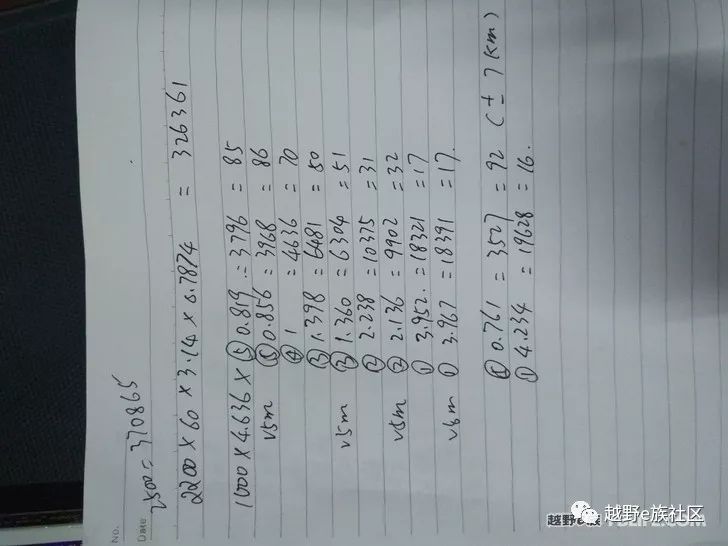 No.
Date
2500 = 370865
2200 × 60 × 3.14 × 0.7874 = 326361
1000 × 4.636 × ⑤ 0.819 = 3796 = 85
v5m ⑤ 0.856 = 3968 = 86
④ 1 = 4636 = 70
③ 1.398 = 6481 = 50
v5m ③ 1.360 = 6304 = 51
② 2.238 = 10375 = 31
v5m ② 2.136 = 9902 = 32
① 3.952 = 18321 = 17
v5m ① 3.967 = 18391 = 17.
0.761 = 3527 = 92 (± 7 km)
① 4.234 = 19628 = 16.
越野e族社区
越野e族